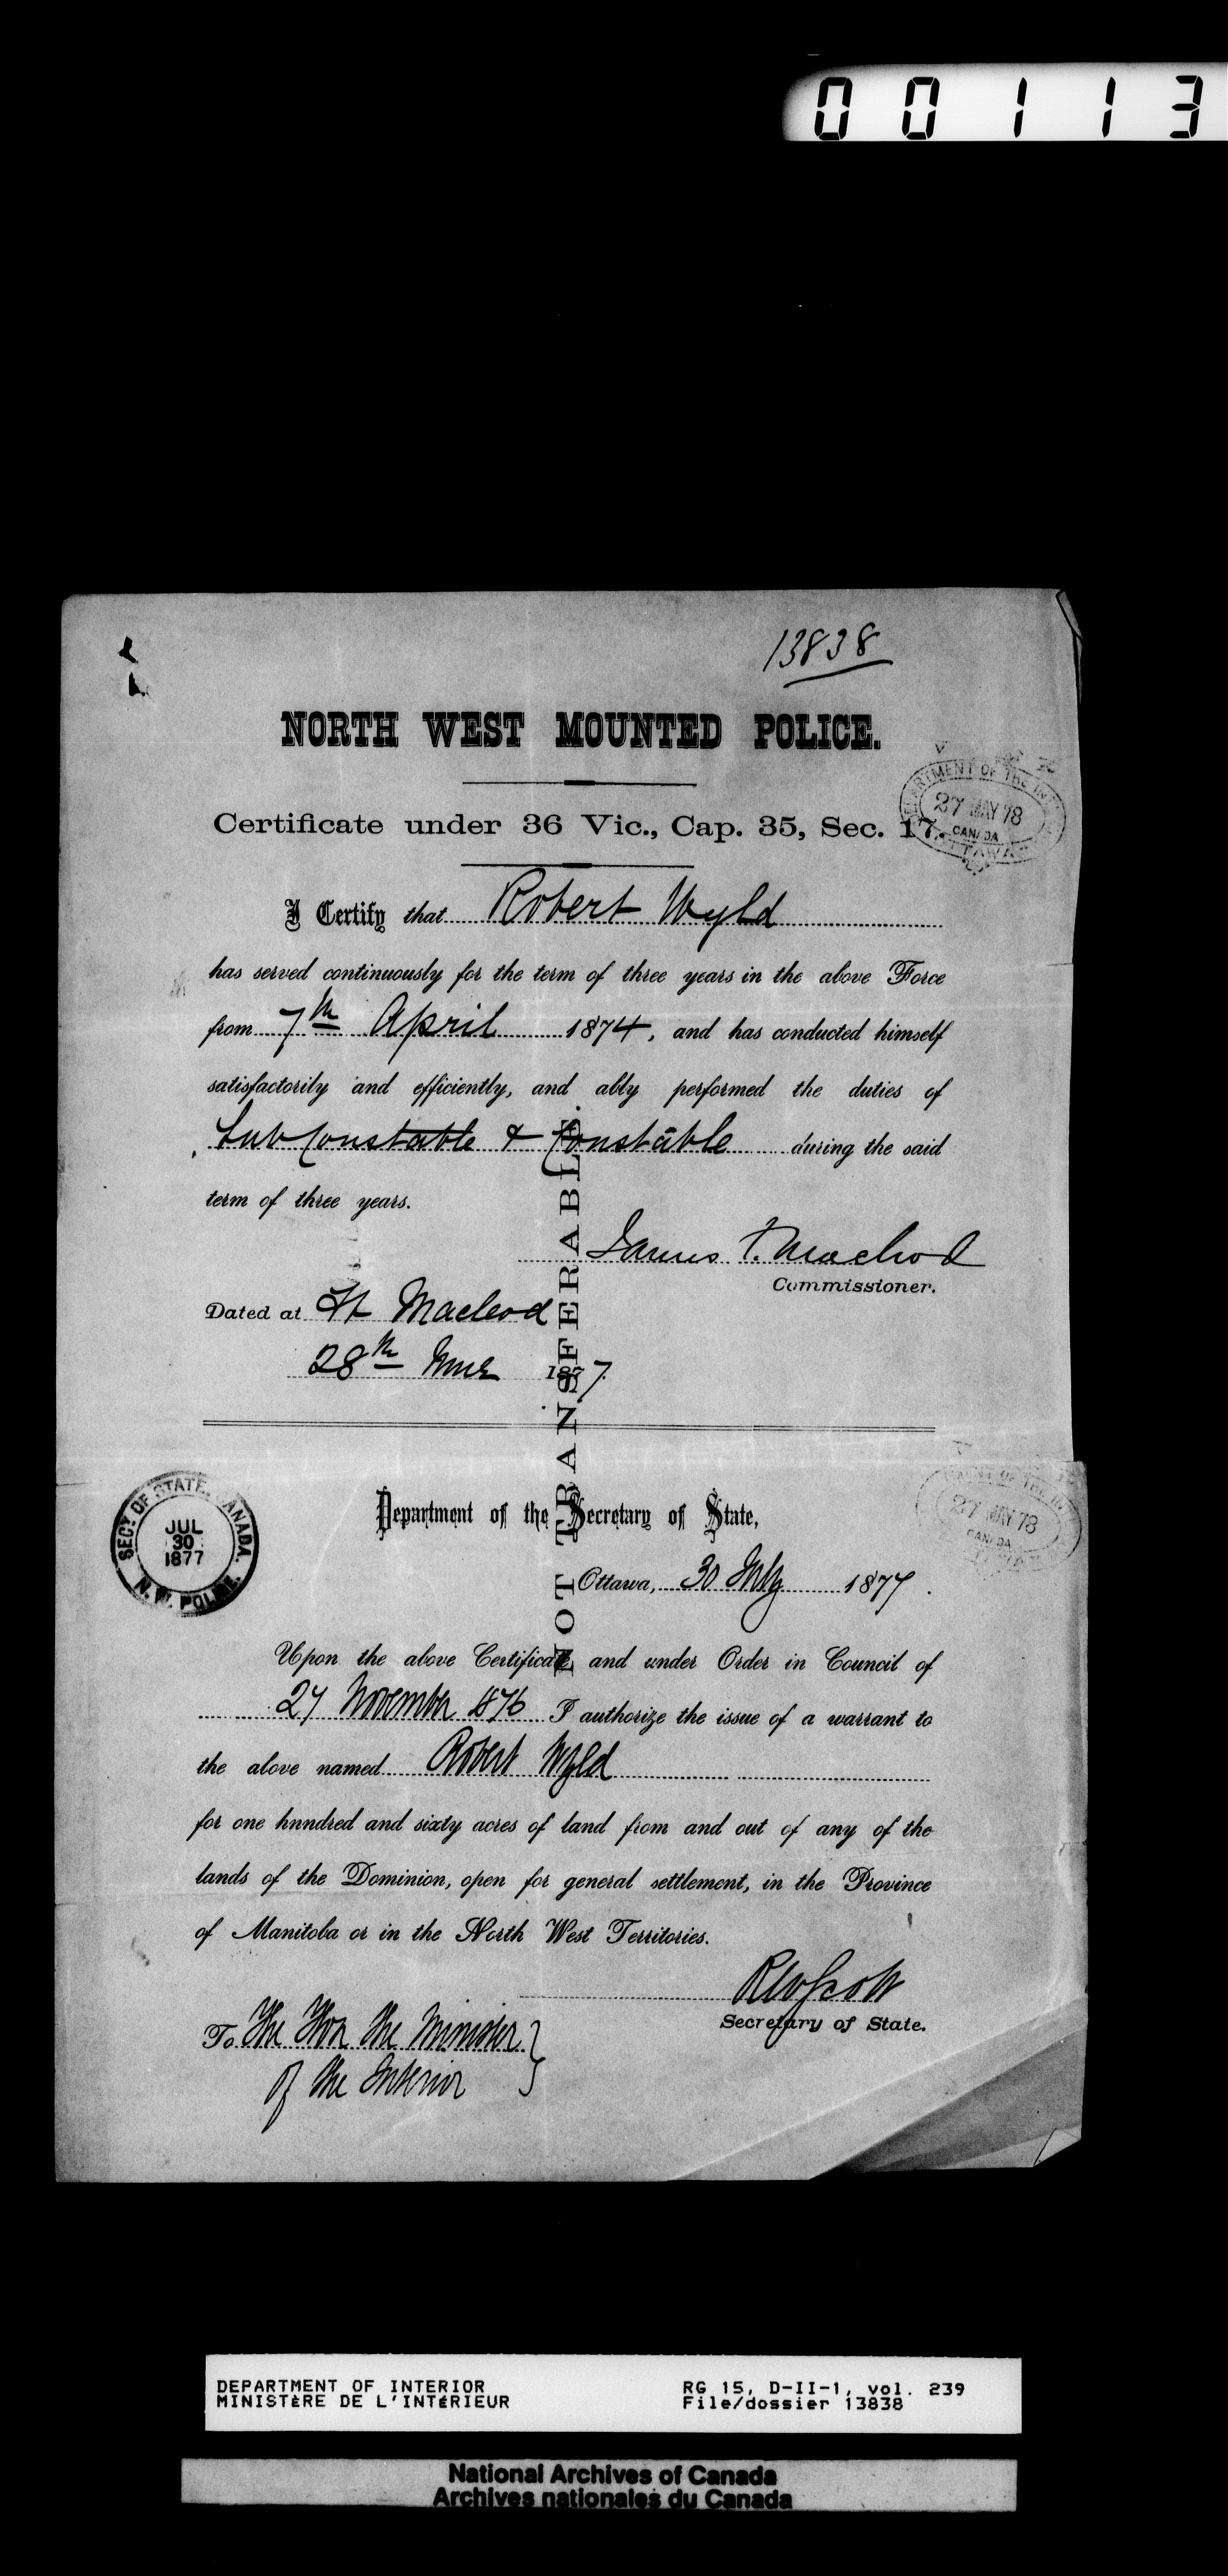 00113
13838
NORTH WEST MOUNTED POLICE.
DEPARTMENT OF THE IN
27 MAY 78
CANADA
OTTAWA
Certificate under 36 Vic., Cap. 35, Sec. 17.
I Certify that Robert Wyld
has served continuously for the term of three years in the above Force
from 7th April 1874, and has conducted himself
satisfactorily and efficiently, and ably performed the duties of
Sub Constable & Constable during the said
term of three years.
James F. Macleod
Commissioner.
Dated at Ft Macleod
28th June 1877.
NOT TRANSFERABLE.
SECY OF STATE. CANADA.
JUL
30
1877
N.W. POLICE.
Department of the Secretary of State,
27 MAY 78
CANADA
Ottawa, 30 July 1877.
Upon the above Certificate and under Order in Council of
27 November 1876 I authorize the issue of a warrant to
the above named Robert Wyld
for one hnndred and sixty acres of land from and out of any of the
lands of the Dominion, open for general settlement, in the Province
of Manitoba or in the North West Territories.
RW Scott
Secretary of State.
To The Hon the Minister
of the Interior
DEPARTMENT OF INTERIOR
MINISTÈRE DE L'INTÉRIEUR
RG 15, D-II-1, vol. 239
File/dossier 13838
National Archives of Canada
Archives nationales du Canada